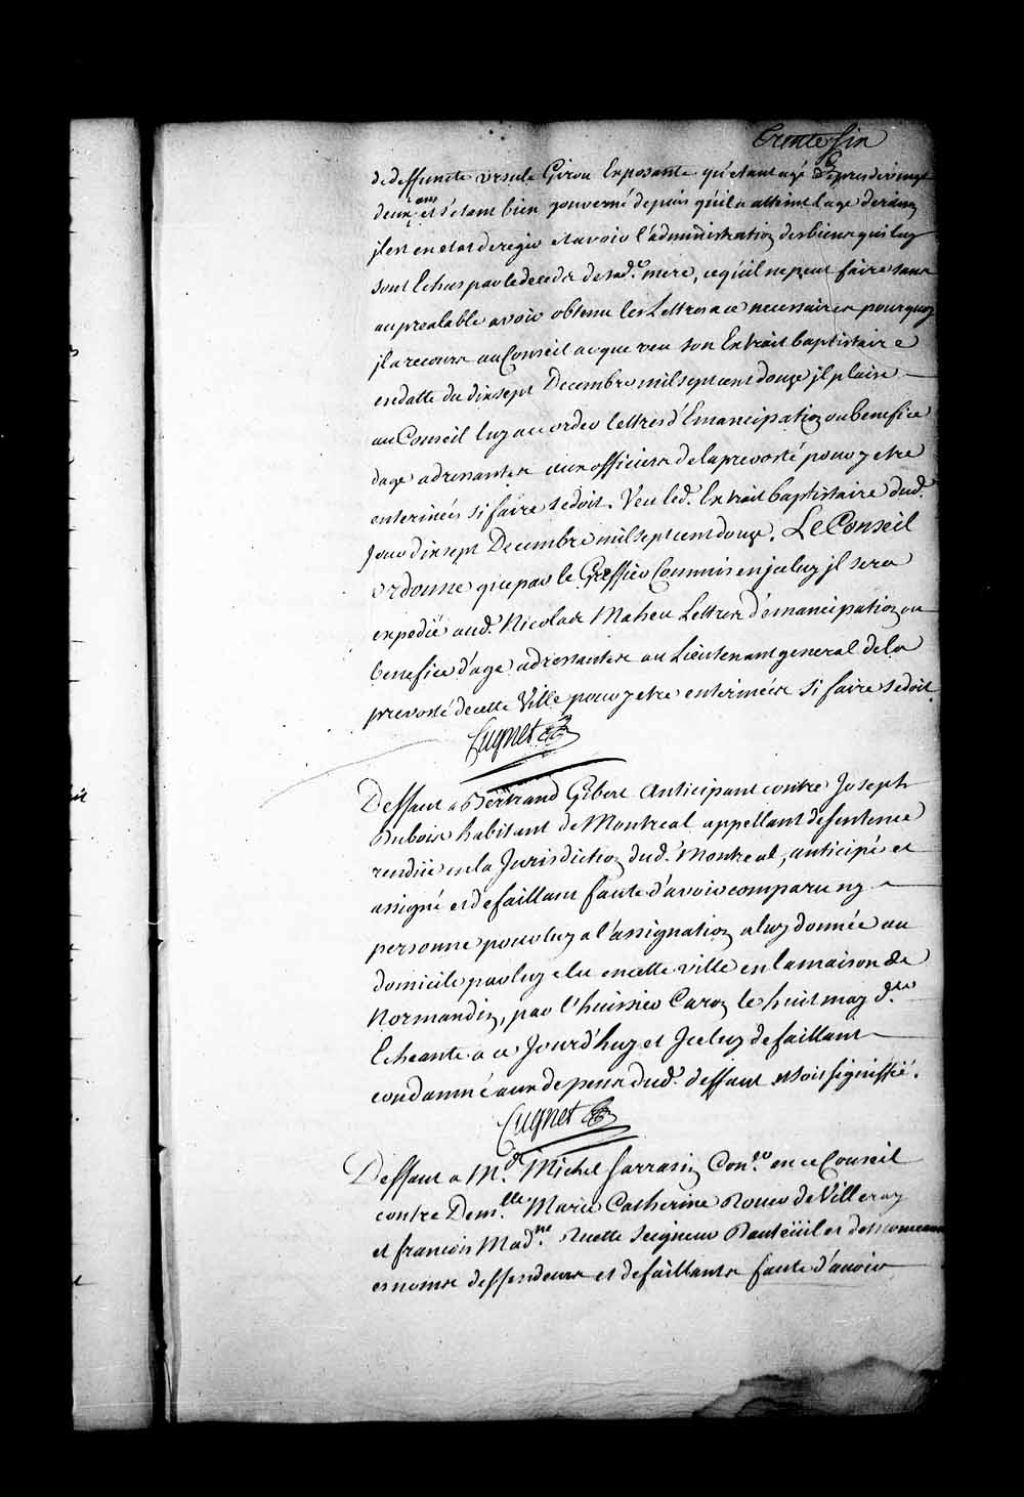 Trente Six
de deffuncte ursule Girou Exposante qu'etant agé de pres de vingt
deux ans et s'etant bien gouverné depuis qu'il a attint l'age de raison
il est en etat de regir et avoir l'administration des biens qui luy
sont Echus par le deces de sad.e mere, ce qu'il ne peut faire sans
au prealable avoir obtenu les Lettres a ce necessaires pourquoy
jl a recours au Conseil a ce que veu son Extrait baptistaire
en datte du dix sept Decembre mil sept cent douze jl plaise
au Conseil luy accorder lettres d'Emancipation ou benefice
dage adressantes aux officiers de la prevosté pour y etre
enterinées si faire se doit. Veu led. Extrait baptistaire dud.
jour dix sept Decembre mil sept cent douze. Le Conseil
ordonne que par le Greffier Commis en jceluy jl sera
expedié aud. Nicolas Maheu Lettres d'emancipation ou
benefice d'age adressantes au Lieutenant general de la
prevosté de cette Ville pour y etre enterinées si faire se doit
Cugnet
Deffaut a Bertrand Gibert Anticipant contre Joseph
Dubois habitant de Montreal appellant de sentence
rendüe en la Jurisdiction dud. Montreal, anticipé et
assigné et defaillant faute d'avoir comparu ny
personne pour luy a l'assignation a luy donnée au
domicile par luy elu en cette ville en la maison de
Normandin, par l'huissier Caron le huit may d.er
Echeante a ce Jourd'huy et Jceluy defaillant
condamné aux depens dud. deffaut et soit signiffié.
Cugnet
Deffaut a M.e Michel Sarrasin Con.er en ce Conseil
contre Dem.lle Marie Catherine Rouer de Villeray
et françois Mad.ne Ruette Seigneur Dauteüil et
es noms deffendeurs et defaillants faute d'avoir